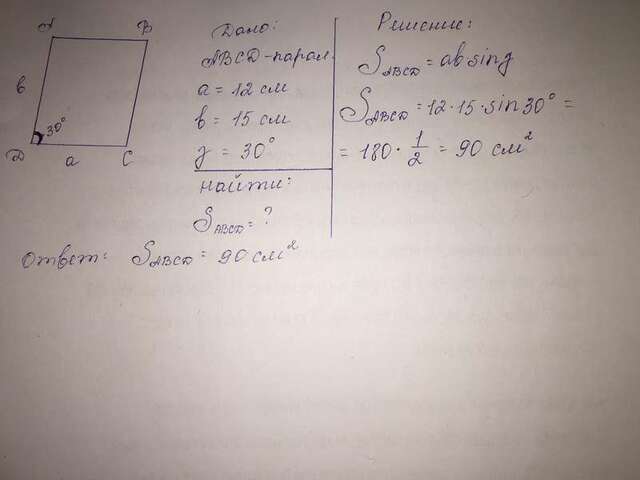 A B
в
30°
D a C
Дано:
ABCD-парал.
a = 12 см
в = 15 см
γ = 30°
найти:
S ABCD = ?
Решение:
S ABCD = ab sin γ
S ABCD = 12 · 15 · sin 30° =
= 180 · 1/2 = 90 см²
ответ: S ABCD = 90 см²